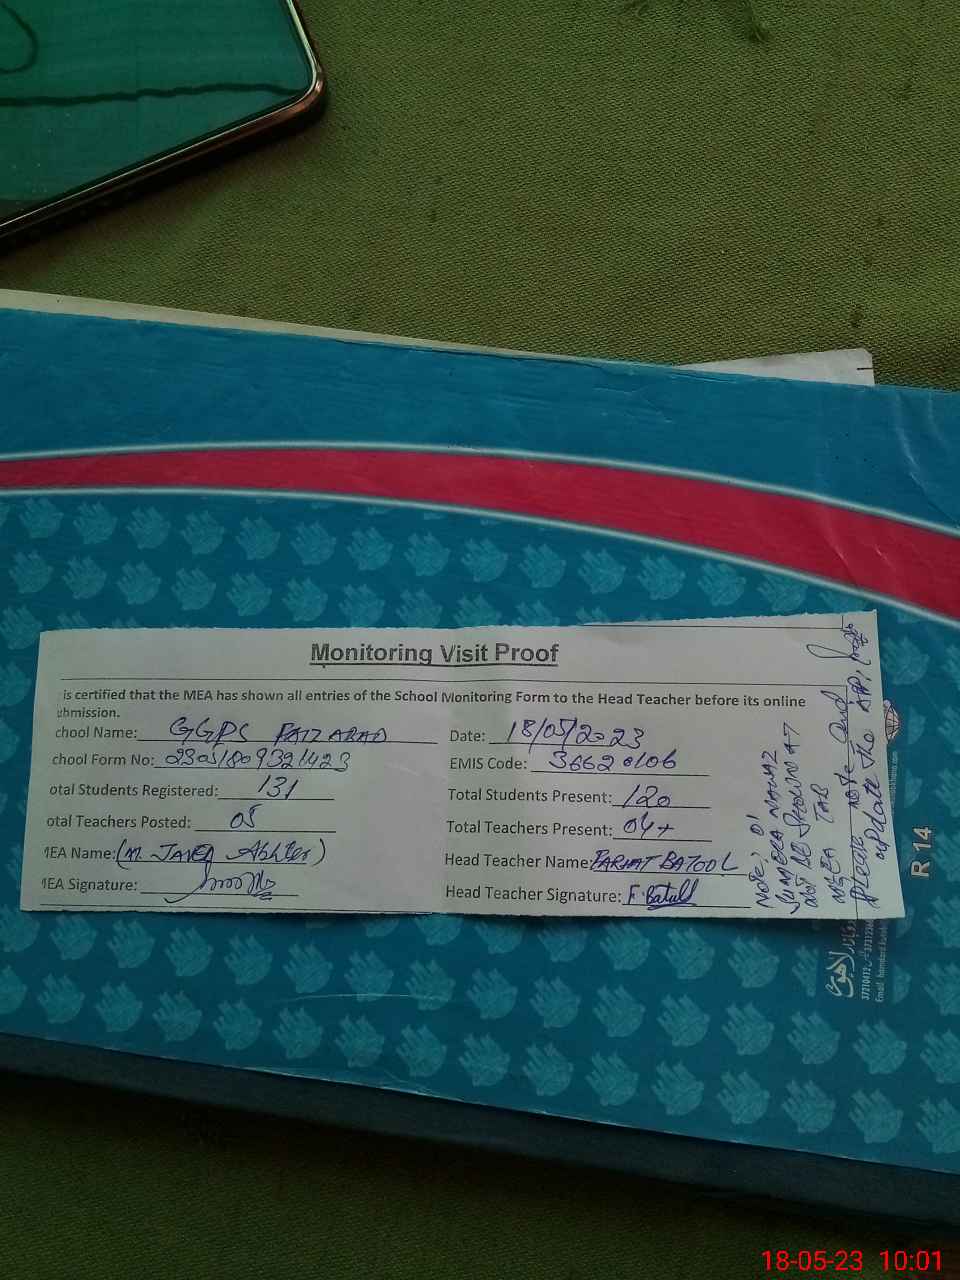 Monitoring Visit Proof
is certified that the MEA has shown all entries of the School Monitoring Form to the Head Teacher before its online
ubmission.
chool Name: GGPS FAIZ ABAD
Date: 18/05/2023
chool Form No: 23051809321423
EMIS Code: 36620106
otal Students Registered: 131
Total Students Present: 120
otal Teachers Posted: 05
Total Teachers Present: 04+
MEA Name: (M. JAVED Akhter)
Head Teacher Name: FARHAT BATOOL
MEA Signature:
Head Teacher Signature: F. Batool
Note: 01
SUMERA NAWAZ
not BE SHOWN AT
MEA TAB
please note and
update the APP,
R 14
18-05-23 10:01